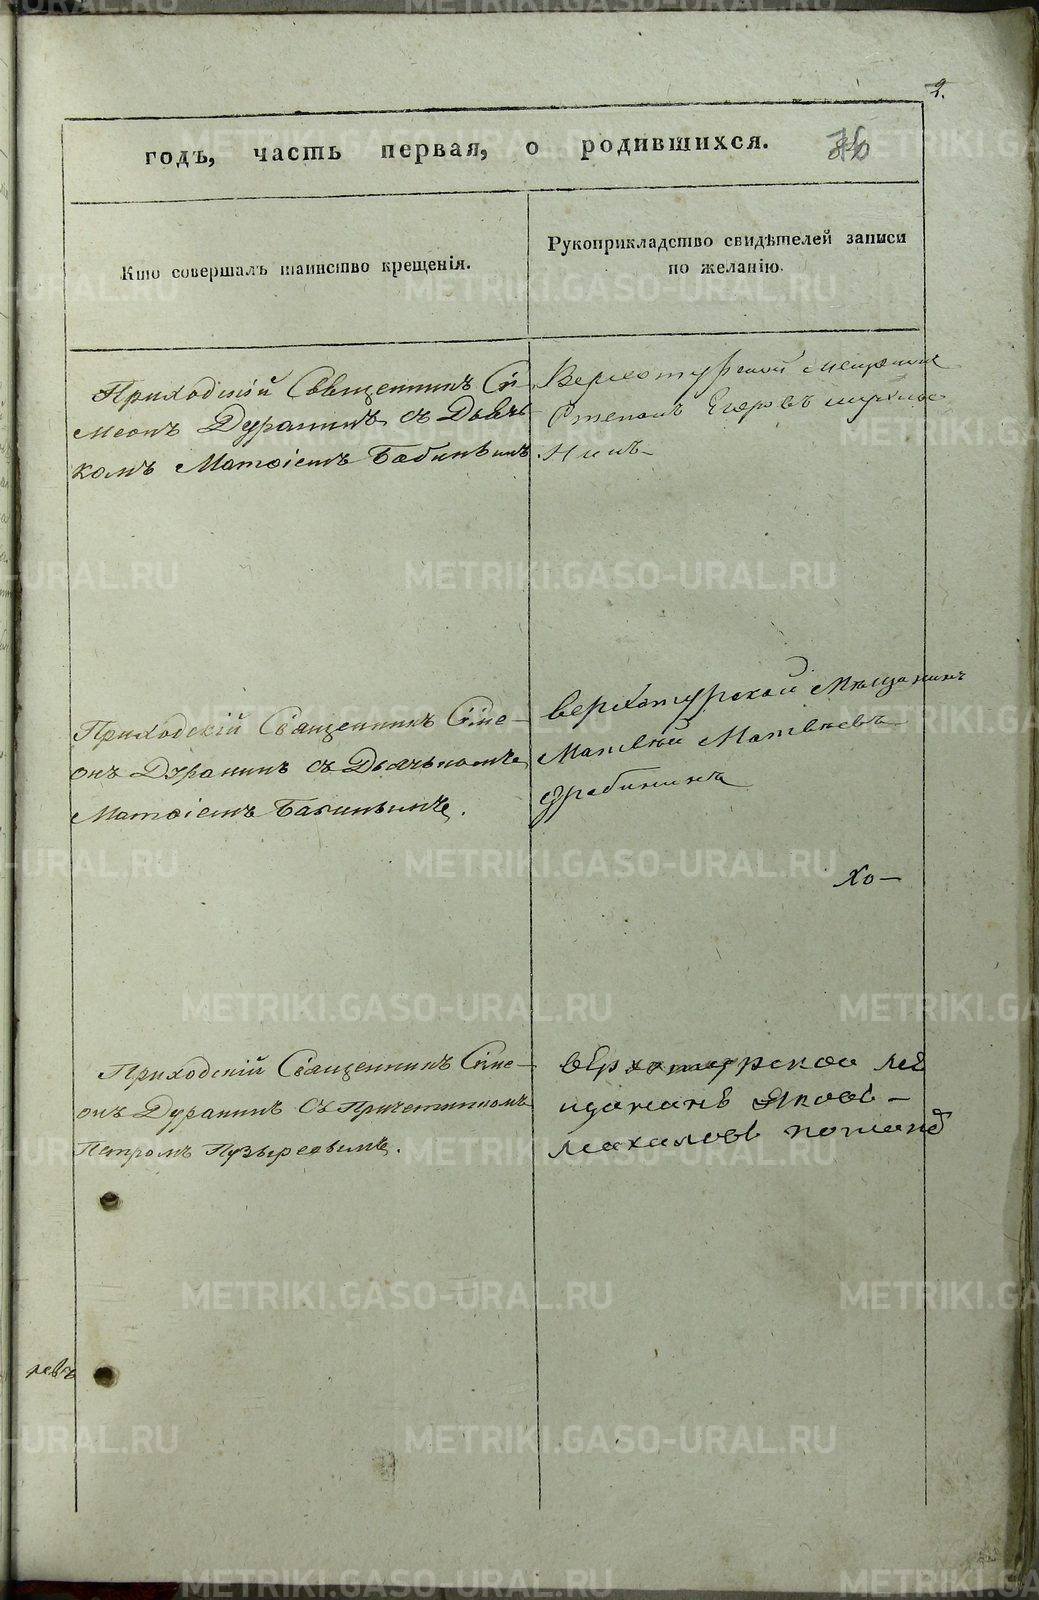 2.
годъ, часть первая, о родившихся.
Кто совершалъ таинство крещенія.
Рукоприкладство свидѣтелей записи
по желанію.
Приходскій Священникъ Си-
меонъ Дуранинъ съ Дьяч-
комъ Матѳіемъ Бабинымъ
Верхотурской мещенинъ
Степанъ Егоровъ
Приходскій Священникъ Симе-
онъ Дуранинъ съ Дьячькомъ
Матѳіемъ Бабинымъ.
верхотурской Мѣщанинъ
Матвѣй Матвѣевъ
Хо-
Приходскій Священникъ Симе-
онъ Дуранинъ Съ Причетникомъ
Петромъ Пузыревымъ.
верхотурской ме
щанинъ Яковъ
ревъ
METRIKI.GASO-URAL.RU